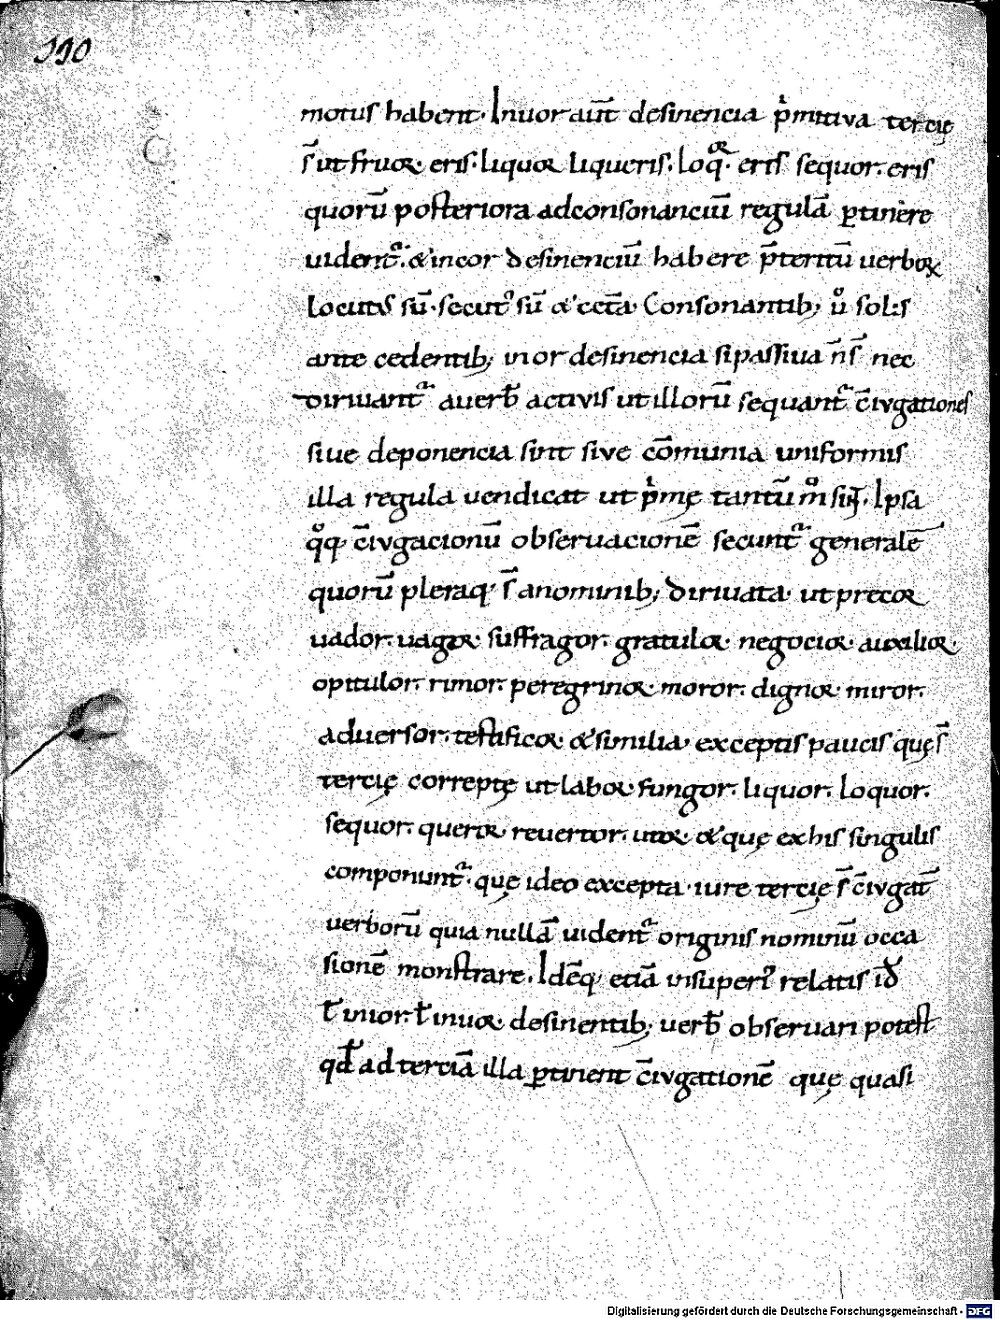 190
motus habent. Inuor aut̄ desinencia p̍mitiva tercię
s̄ ut fruor. eris. liquor liqueris. loq̄or. eris sequor. eris
quorū posteriora adconsonanciū regulā ꝑtinere
uident᷑. & incor desinenciū habere p̄teritū uerboꝝ
locutus sū. secut᷒ sū & cet̄a. Consonantib; ů solis
ante cedentib; in or desinencia si passiua n̄ s̄ nec
diriuant᷑ a uerb̄ activis ut illorū sequant᷑ c̄iugationes
siue deponencia sint sive cōmunia uniformis
illa regula uendicat ut p̍mę tantū m̊ sint. Ipsa
q̊q; c̄iugacionū obseruacionē secunt᷑ generalē
quorū pleraq; s̄ anominib; diriuata ut precor
uador. uagor. suffragor. gratulor. negocior. auxilior.
opitulor. rimor. peregrinor. moror. dignor. miror.
aduersor. testificor & similia exceptis paucis quę s̄
tercię correptę ut labor fungor. liquor. loquor.
sequor. queror. reuertor. utor. & quę ex his singulis
componunt᷑. quę ideo excepta iure tercię s̄ c̄iugat̄
uerborū quia nullā uident᷑ originis nominū occa
sionē monstrare. Idēq; etiā insuperi᷒ relatis id̄
t̄ inior. t̄ inuor desinentib; uerb̄ obseruari potest
qd̄ ad terciā illa ꝑtinent c̄iugationē quę quasi
Digitalisierung gefördert durch die Deutsche Forschungsgemeinschaft - DFG